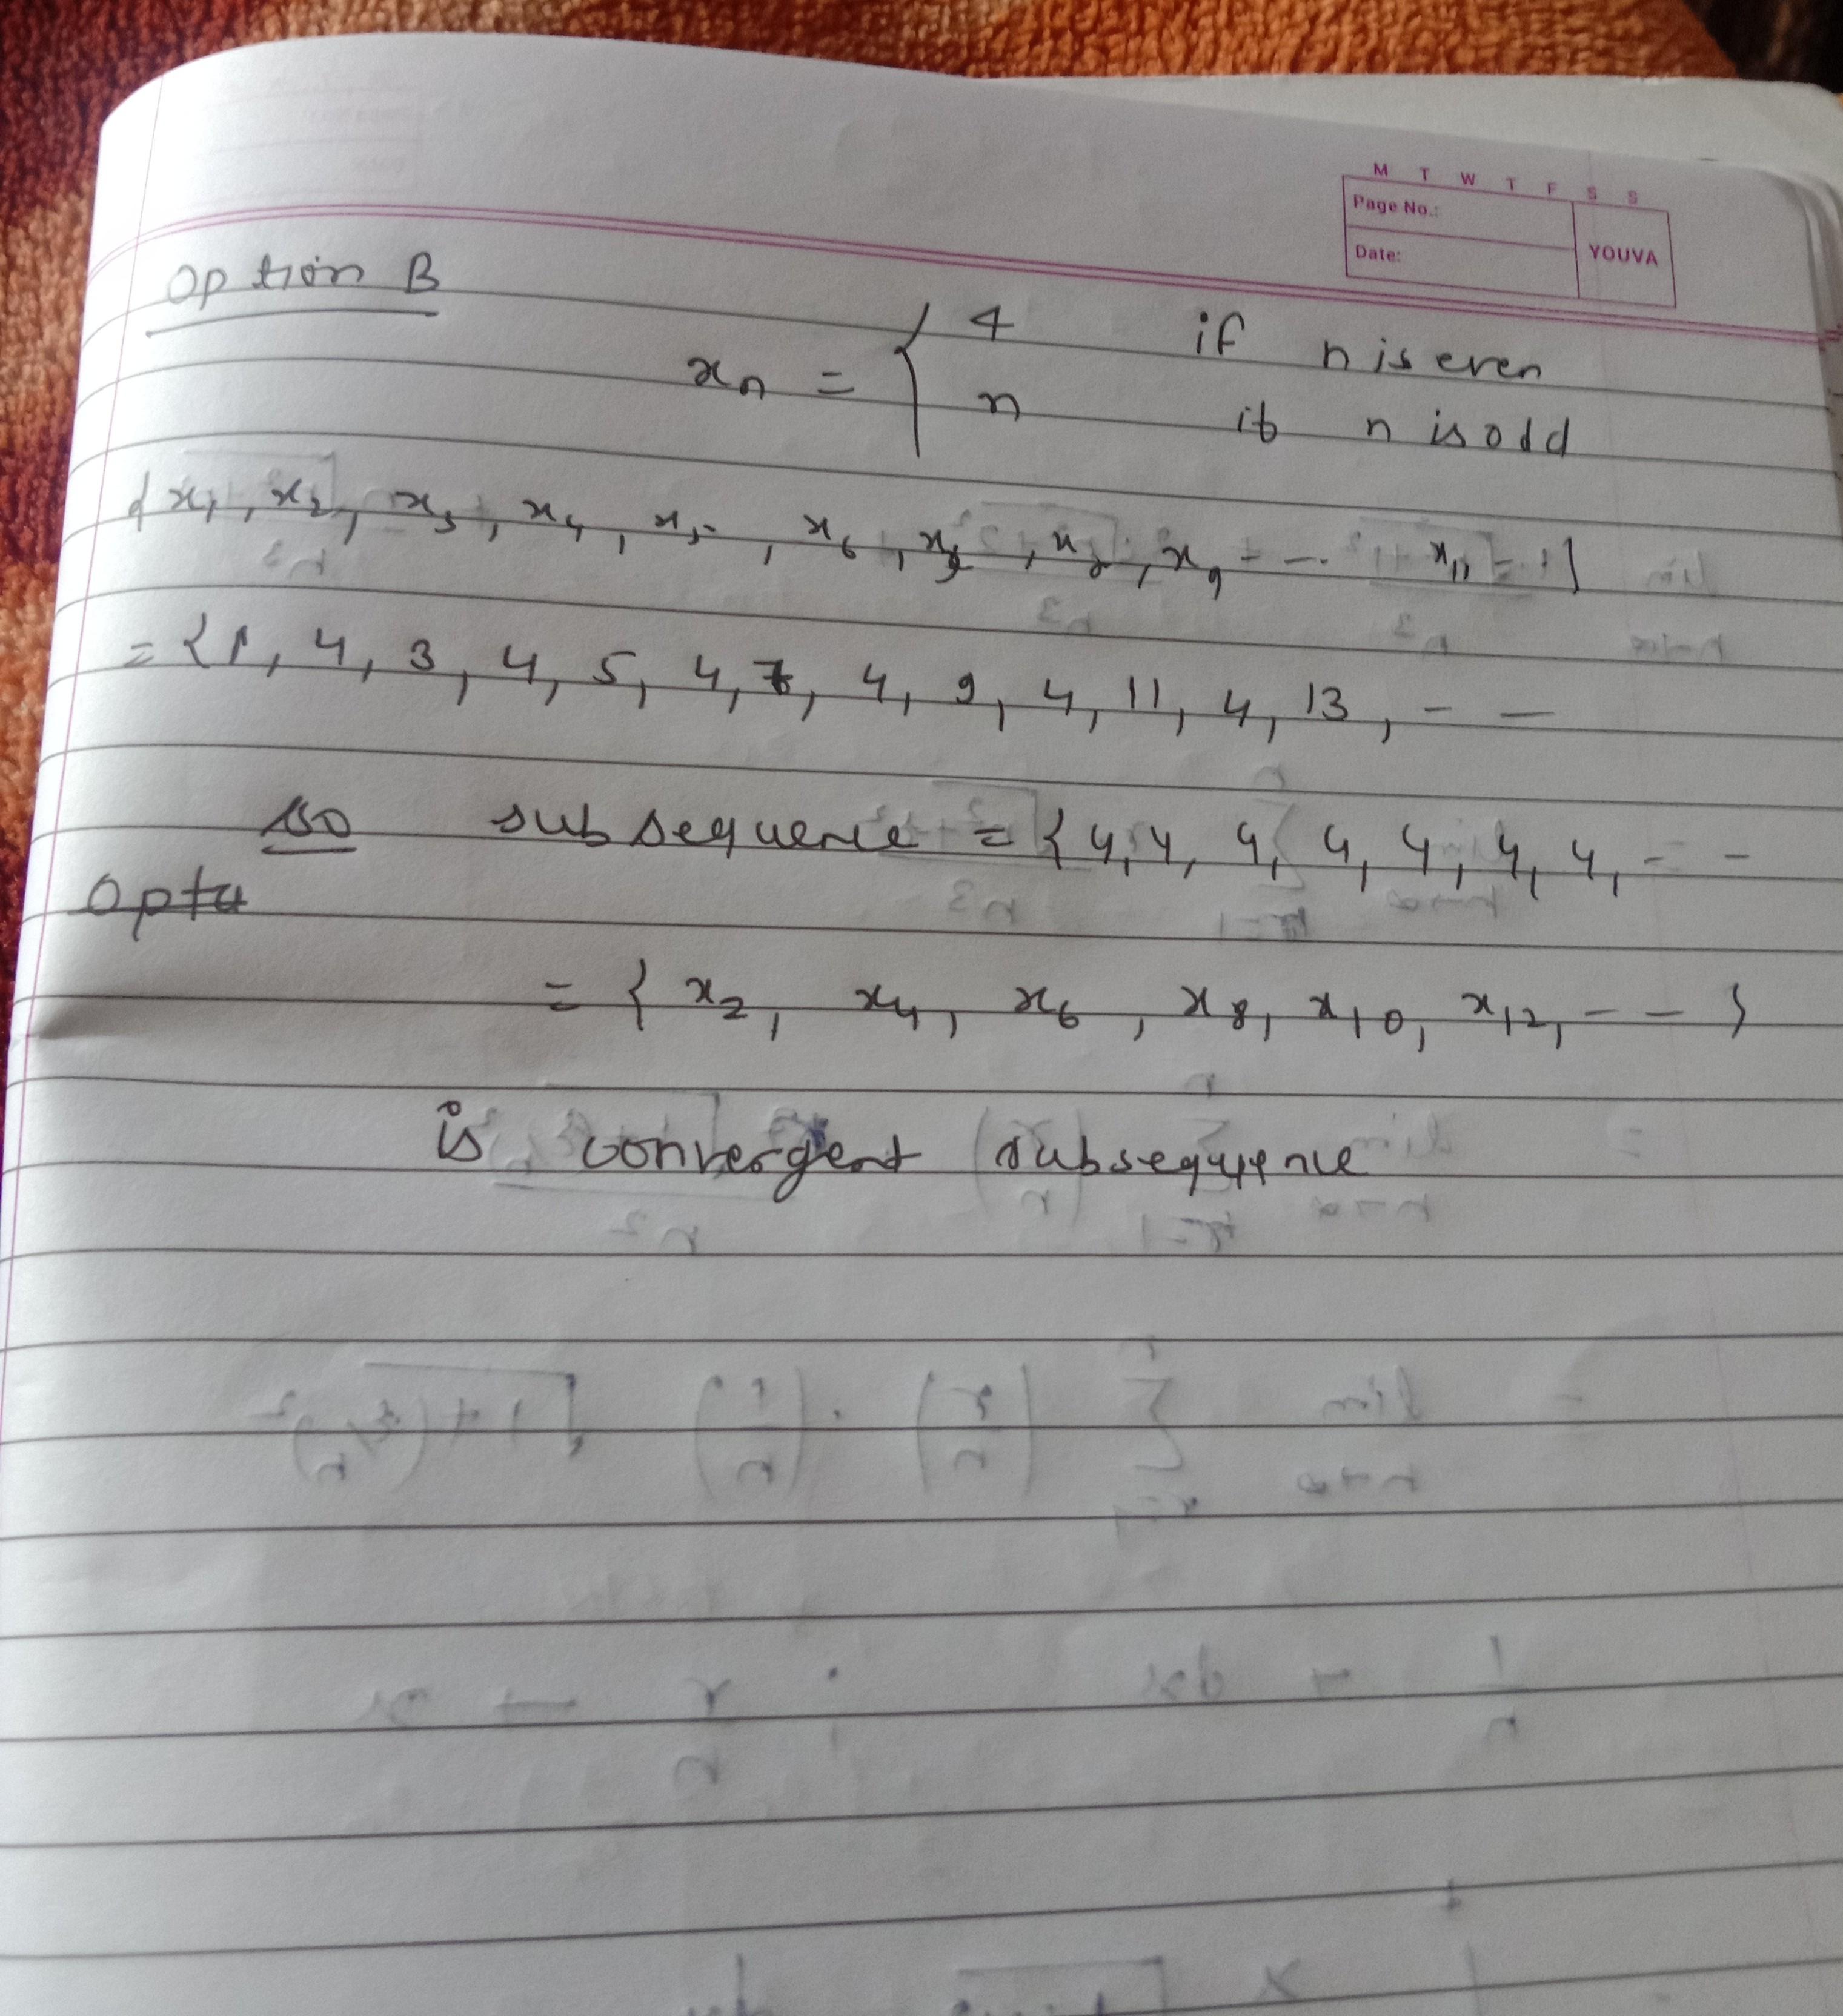 M T W T F S S
Page No.:
Date:
YOUVA
Option B
xₙ = { 4 if n is even
n if n is odd
{ x₁, x₂, x₃, x₄, x₅, x₆, x₇, x₈, x₉ - - . x₁₁ - - }
= { 1, 4, 3, 4, 5, 4, 7, 4, 9, 4, 11, 4, 13, - -
so subsequence = { 4, 4, 4, 4, 4, 4, 4, - -
= { x₂, x₄, x₆, x₈, x₁₀, x₁₂, - - }
is convergent subsequence